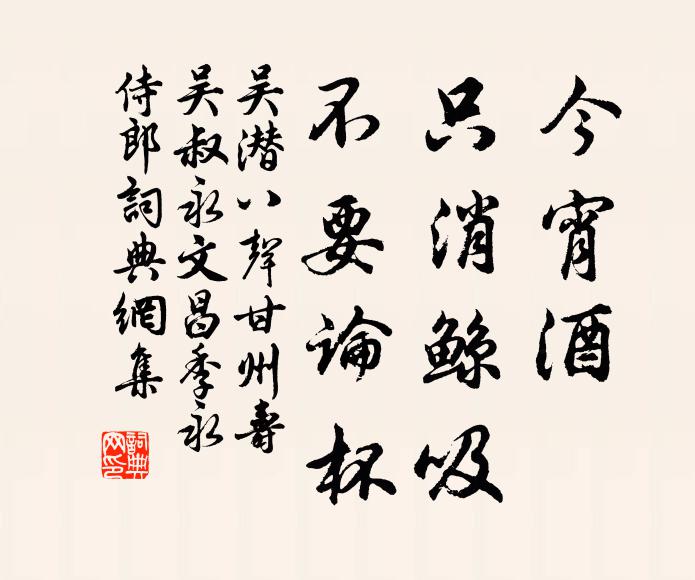 今宵酒
只消鲸吸
不要论杯
吴潜八聲甘州壽
吴叔永文昌季永
侍郎詞典網集
詞典網印